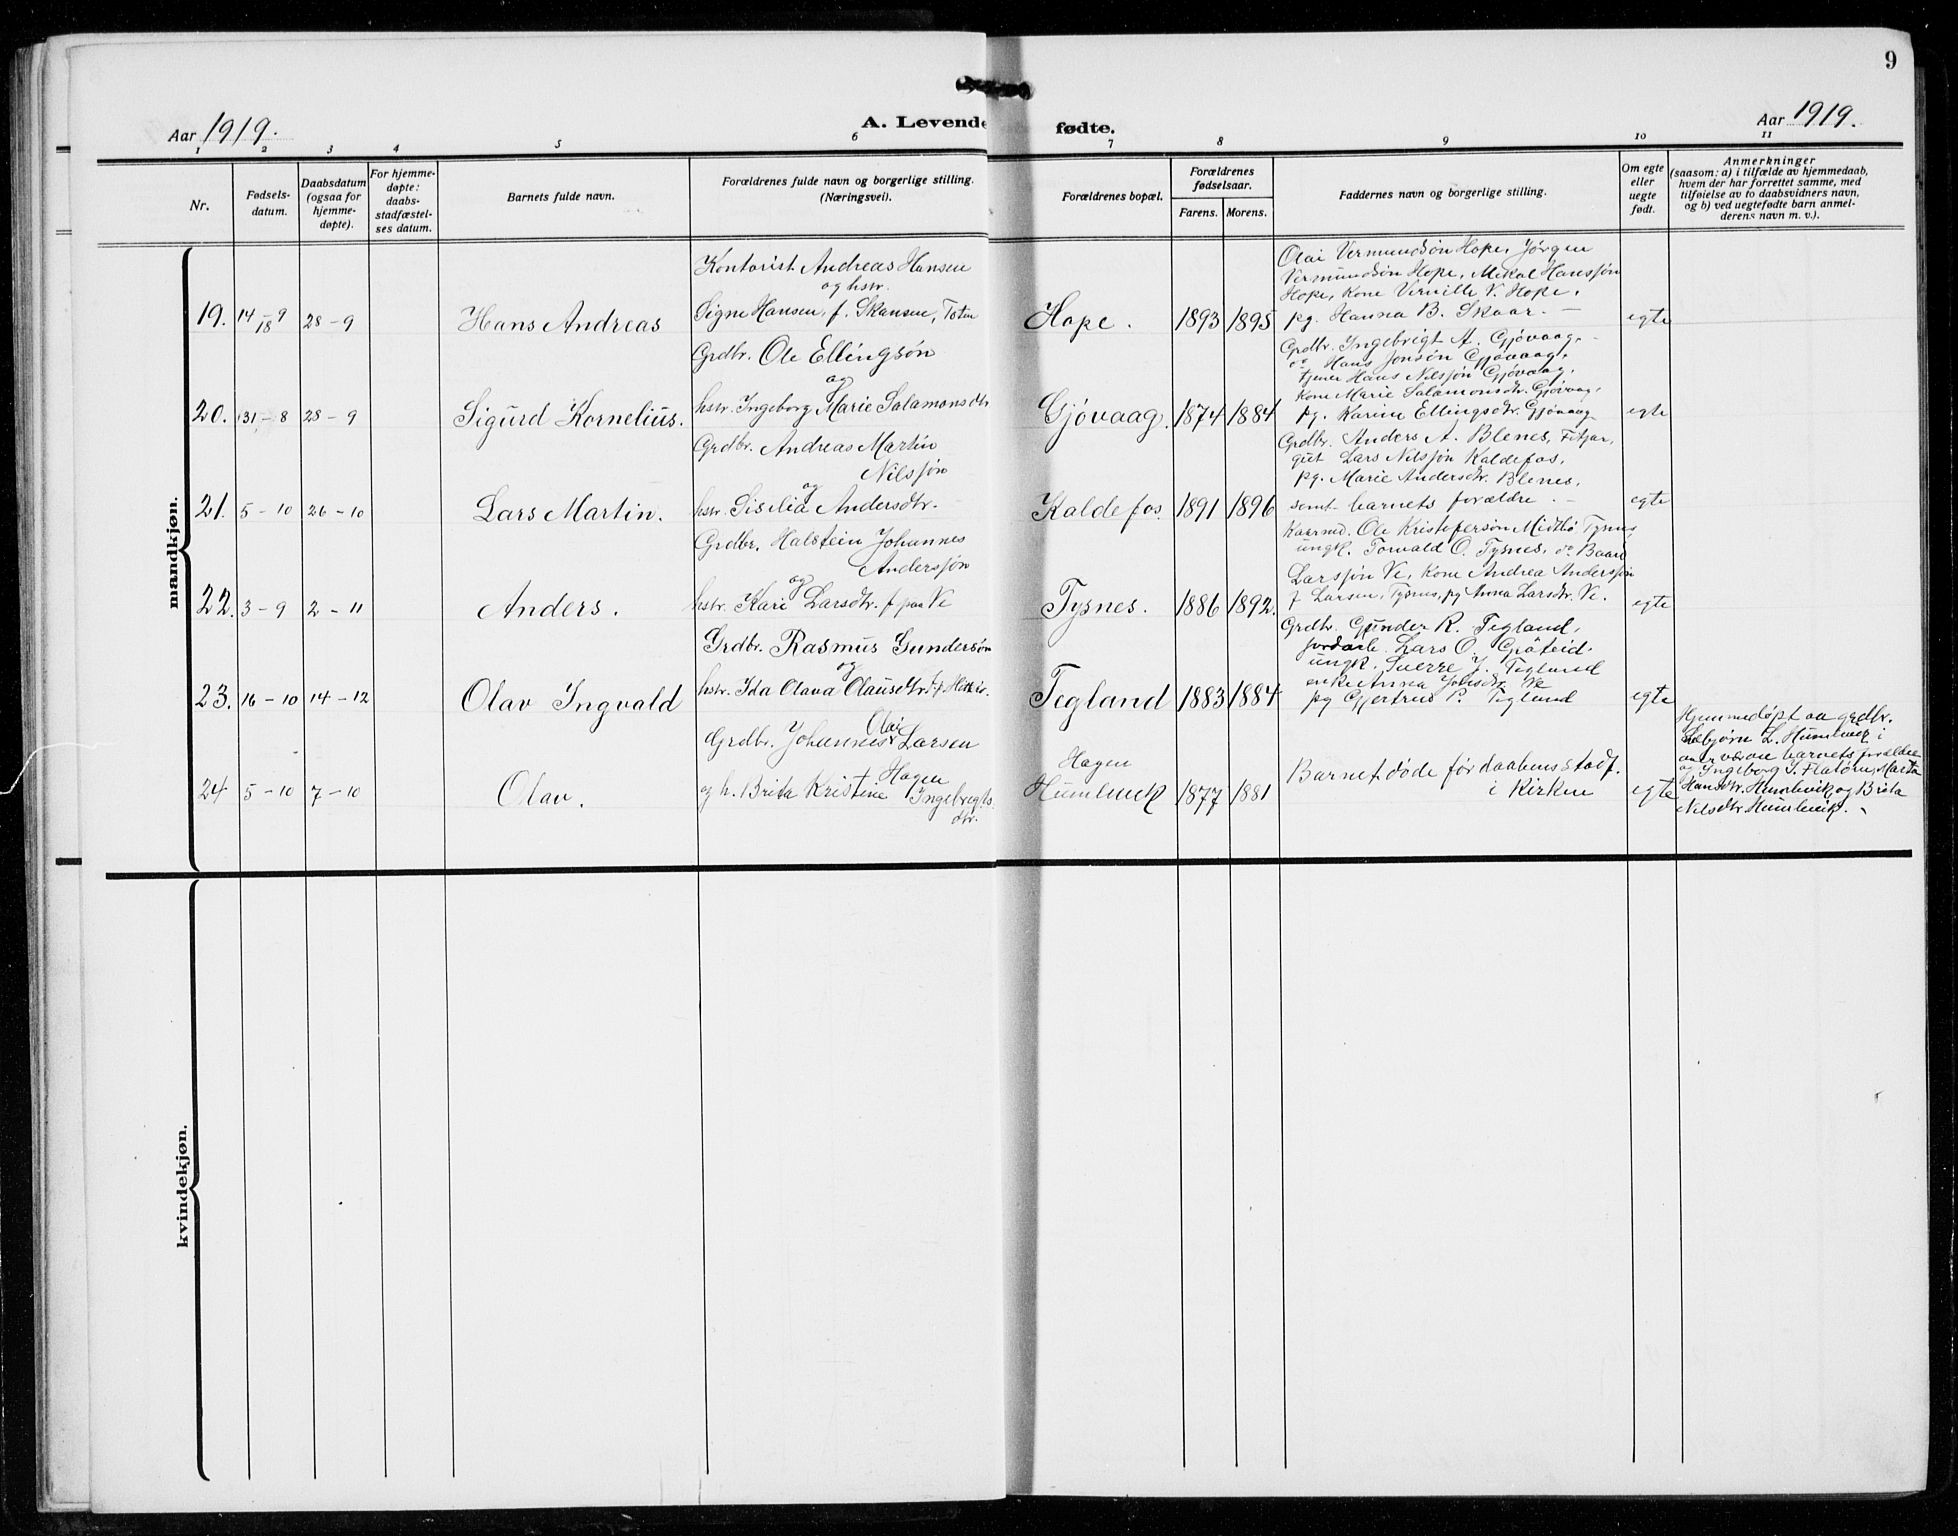 9
Aar 1919.
A. Levende fødte.
Aar 1919.
1 2 3 4 5 6 7 8 9 10 11
Nr.
Fødsels-
datum.
Daabsdatum
(ogsaa for
hjemme-
døpte).
For hjemme-
døpte:
daabs-
stadfæstel-
ses datum.
Barnets fulde navn.
Forældrenes fulde navn og borgerlige stilling.
(Næringsvei).
Forældrenes bopæl.
Forældrenes
fødselsaar.
Farens. Morens.
Faddernes navn og borgerlige stilling.
Om egte
eller
uegte
født.
Anmerkninger
(saasom: a) i tilfælde av hjemmedaab,
hvem der har forrettet samme, med
tilføielse av to daabsvidners navn,
og b) ved uegtefødte barn anmel-
derens navn m. v.).
mandkjøn.
19. 14/18 - 9 28 - 9 Hans Andreas
Kontorist Andreas Hansen
og hstr.
Signe Hansen, f. Skansen, Toten
Hope. 1893 1895
Olai Vermundsøn Hope, Jørgen
Vermundsøn Hope, Mikal Hanssøn
Hope, Kone Vernille V. Hope,
pg. Hanna B. Skaar. -
egte
20. 31 - 8 28 - 9 Sigurd Kornelius.
Grdbr. Ole Ellingsøn
og
hstr. Ingeborg Marie Salamonsdtr
Gjøvaag. 1874 1884
Grdbr. Ingebrigt A. Gjøvaag,
do Hans Jonsøn Gjøvaag,
tjener Hans Nilssøn Gjøvaag,
Kone Marie Salamonsdtr. Gjøvaag,
pg. Karine Ellingsdtr. Gjøvaag
egte
21. 5 - 10 26 - 10 Lars Martin.
Grdbr. Andreas Martin
Nilssøn
og
hstr. Sisilia Andersdtr.
Kaldefos. 1891 1896
Grdbr. Anders A. Blenes, Fitjar,
gut Lars Nilssøn Kaldefos,
pg. Marie Andersdtr. Blenes,
samt barnets forældre. -
egte
22. 3 - 9 2 - 11 Anders.
Grdbr. Halstein Johannes
Anderssøn
og
hstr. Kari Larsdtr. f. paa Ve
Tysnes. 1886 1892.
Kaarmd. Ole Kristofersøn Midtbø Tysnes
ungk. Torvald O. Tysnes, do Baard
Larssøn Ve, Kone Andrea Anderssøn
f Larsen, Tysnes, pg Anna Larsdtr. Ve.
egte
23. 16 - 10 14 - 12 Olav Ingvald
Grdbr. Rasmus Gundersøn
og
hstr. Ida Olava Olausdtr. f.
Tegland 1883 1884
Grdbr. Gunder R. Tegland,
Lars O.
ungk. Sverre J. Tegland
enke Anna Ve
pg Gjertrud P. Tegland
egte
24 5 - 10 7 - 10 Olav.
Grdbr. Johannes Olai Larsen
Hagen
og h. Brita Kristine Ingebrigts-
dtr.
Hagen
Humlevik 1877 1881
Barnet døde før daabens stadf.
i kirken
egte
Hjemmedøpt av grdbr.
L. Humlevik i
nærværelse barnets forældre
og Ingeborg J. Flatøen, Marta
Hansdtr. Humlevik og Brita
Nilsdtr Humlevik.
kvindekjøn.